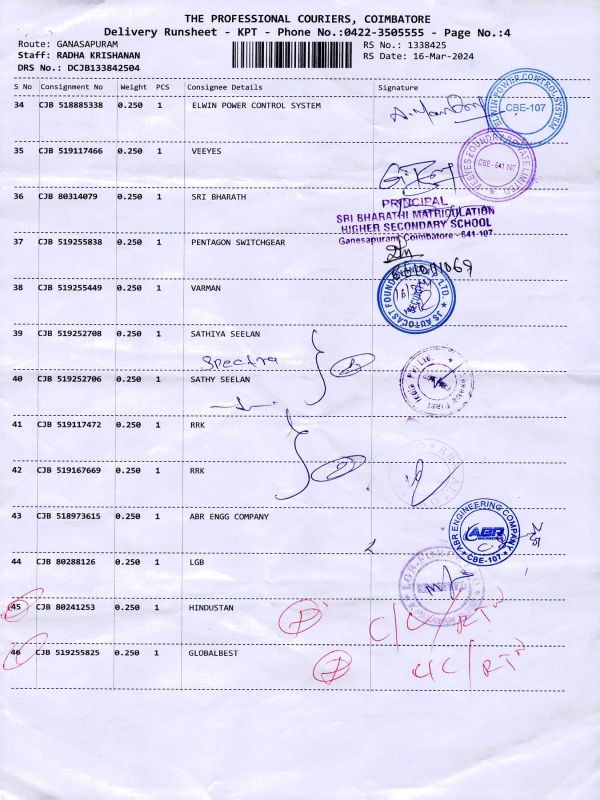 THE PROFESSIONAL COURIERS, COIMBATORE
Delivery Runsheet - KPT - Phone No.:0422-3505555 - Page No.:4
Route: GANASAPURAM RS No.: 1338425
Staff: RADHA KRISHANAN RS Date: 16-Mar-2024
DRS No.: DCJB133842504
S No Consignment No Weight PCS Consignee Details Signature
34 CJB 518885338 0.250 1 ELWIN POWER CONTROL SYSTEM
ELWIN POWER CONTROL SYSTEM CBE-107
35 CJB 519117466 0.250 1 VEEYES
VEEYES FOUNDRY PRIVATE LIMITED CBE - 641 107
36 CJB 80314079 0.250 1 SRI BHARATH
PRINCIPAL
SRI BHARATHI MATRICULATION
HIGHER SECONDARY SCHOOL
Ganesapuram, Coimbatore - 641-107.
37 CJB 519255838 0.250 1 PENTAGON SWITCHGEAR
38 CJB 519255449 0.250 1 VARMAN
JS AUTOCAST FOUNDRY
39 CJB 519252708 0.250 1 SATHIYA SEELAN
Spectra
40 CJB 519252706 0.250 1 SATHY SEELAN
India Pvt. Ltd.
41 CJB 519117472 0.250 1 RRK
42 CJB 519167669 0.250 1 RRK
43 CJB 518973615 0.250 1 ABR ENGG COMPANY
ABR ENGINEERING COMPANY ABR CBE-107
44 CJB 80288126 0.250 1 LGB
45 CJB 80241253 0.250 1 HINDUSTAN C/C/RTN
46 CJB 519255825 0.250 1 GLOBALBEST C/C/RTN